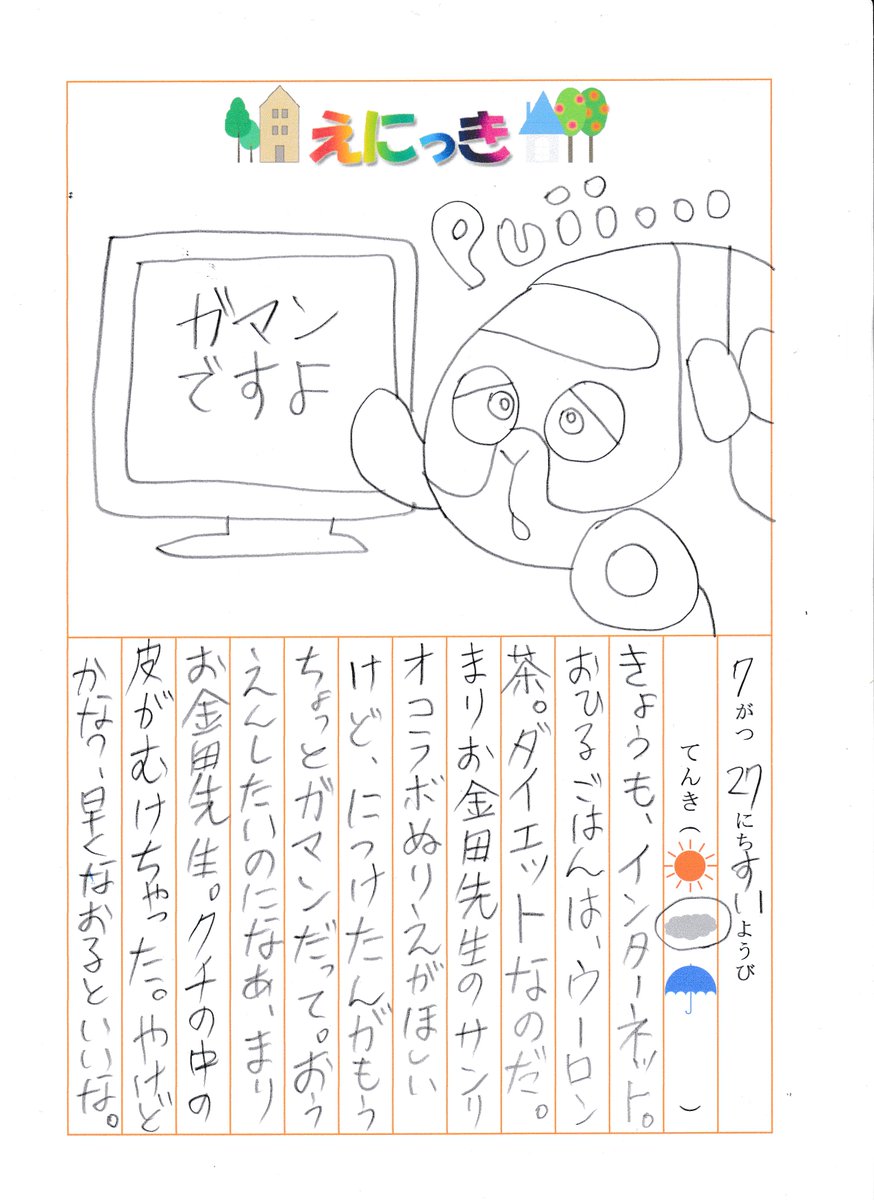 えにっき
Puii...
ガマン
ですよ
7がつ27にちすいようび
てんき( )
きょうも、インターネット。
おひるごはんは、ウーロン
茶。ダイエットなのだ。
まりお金田先生のサンリ
オコラボぬりえがほしい
けど、につけたんがもう
ちょっとガマンだって。おう
えんしたいのになあ、まり
お金田先生。クチの中の
皮がむけちゃった。やけど
かな?、早くなおるといいな。